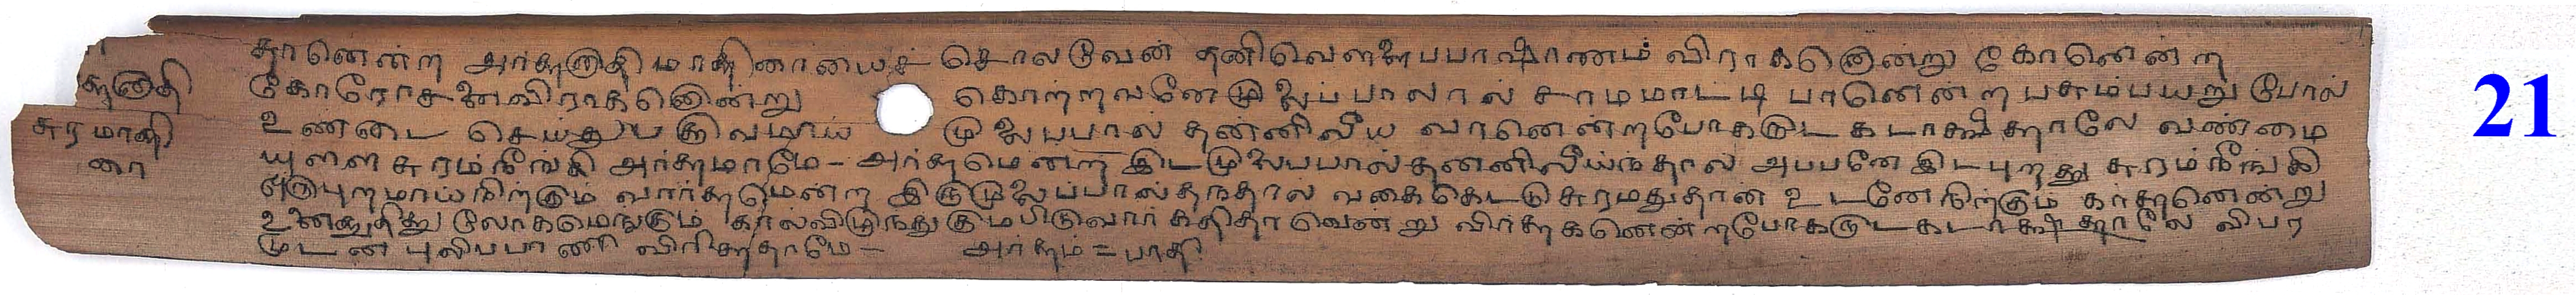 தானென்ற அர்த்தருதி மாத்திரையைச் சொலடுவன் தனிவெளளைபபாஷாணம் விராகனென்று கோனென்ற
சுருதி கோரோசனைவிராகனென்று கொற்றவனேமுலைப்பாலால் சாமமாட்டி பானென்ற பசும்பயறு போல்
சுரமாத்தி உண்டை செய்து முலைபபால் தன்னிலீய வானென்றபோகருட கடாக்ஷத்தாலே வண்மை
ரை யுளள சுரம்நீஙகி அர்த்தமாமே- அர்த்தமென்ற இடமுலைபபால்தன்னிலீய்ந்தால் அப்பனே இடபுறத்து சுரம்நீங்கி
நிற்கும் வார்த்தமென்ற இருமுலைப்பால்தந்தால் வகைகெட்டு சுரமதுதான் உடனேநிற்கும் கர்த்தனென்று
உனைத்துதித்து லோகமெஙகும் காலவிழுந்து கும்பிடுவார் வென்று விர்த்தகனென்றபோகருடகடாக்ஷத்தாலே விபர
முடன் புலிபபாணி விரித்தாமே- அர்த்தம் = பாதி
21